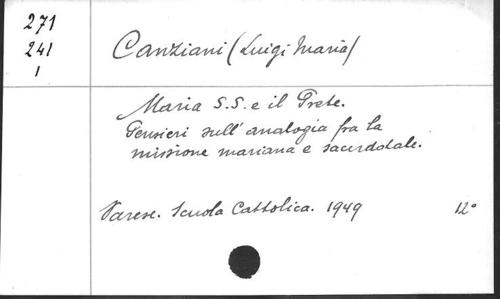 271
241
1
Canziani (Luigi Maria)
Maria S.S. e il Prete.
Pensieri sull'analogia fra la
missione mariana e sacerdotale.
Varese. Scuola Cattolica. 1949 12°